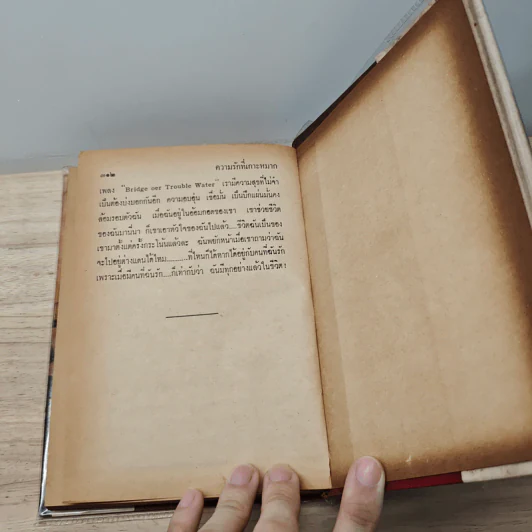 ๓๑๒
ความรักที่เกาะหมาก
เพลง "Bridge oer Trouble Water" เรามีความสุขที่ไม่จำ
เป็นต้องบ่งบอกกันอีก ความอบอุ่น เชื่อมั่น เป็นปึกแผ่นมั่นคง
ล้อมรอบตัวฉัน เมื่อฉันอยู่ในอ้อมกอดของเขา เขาช่วยชีวิต
ของฉันมาปีนี่นา ก็เขาเอาหัวใจของฉันไปแล้ว....ชีวิตฉันเป็นของ
เขามาตั้งแต่ครั้งกระโน้นแล้วละ ฉันพยักหน้าเมื่อเขาถามว่าฉัน
จะไปอยู่ต่างแดนได้ไหม..........ที่ไหนก็ได้หากได้อยู่กับคนที่ฉันรัก
เพราะเมื่อมีคนที่ฉันรัก....ก็เท่ากับว่า ฉันมีทุกอย่างแล้วในชีวิต!